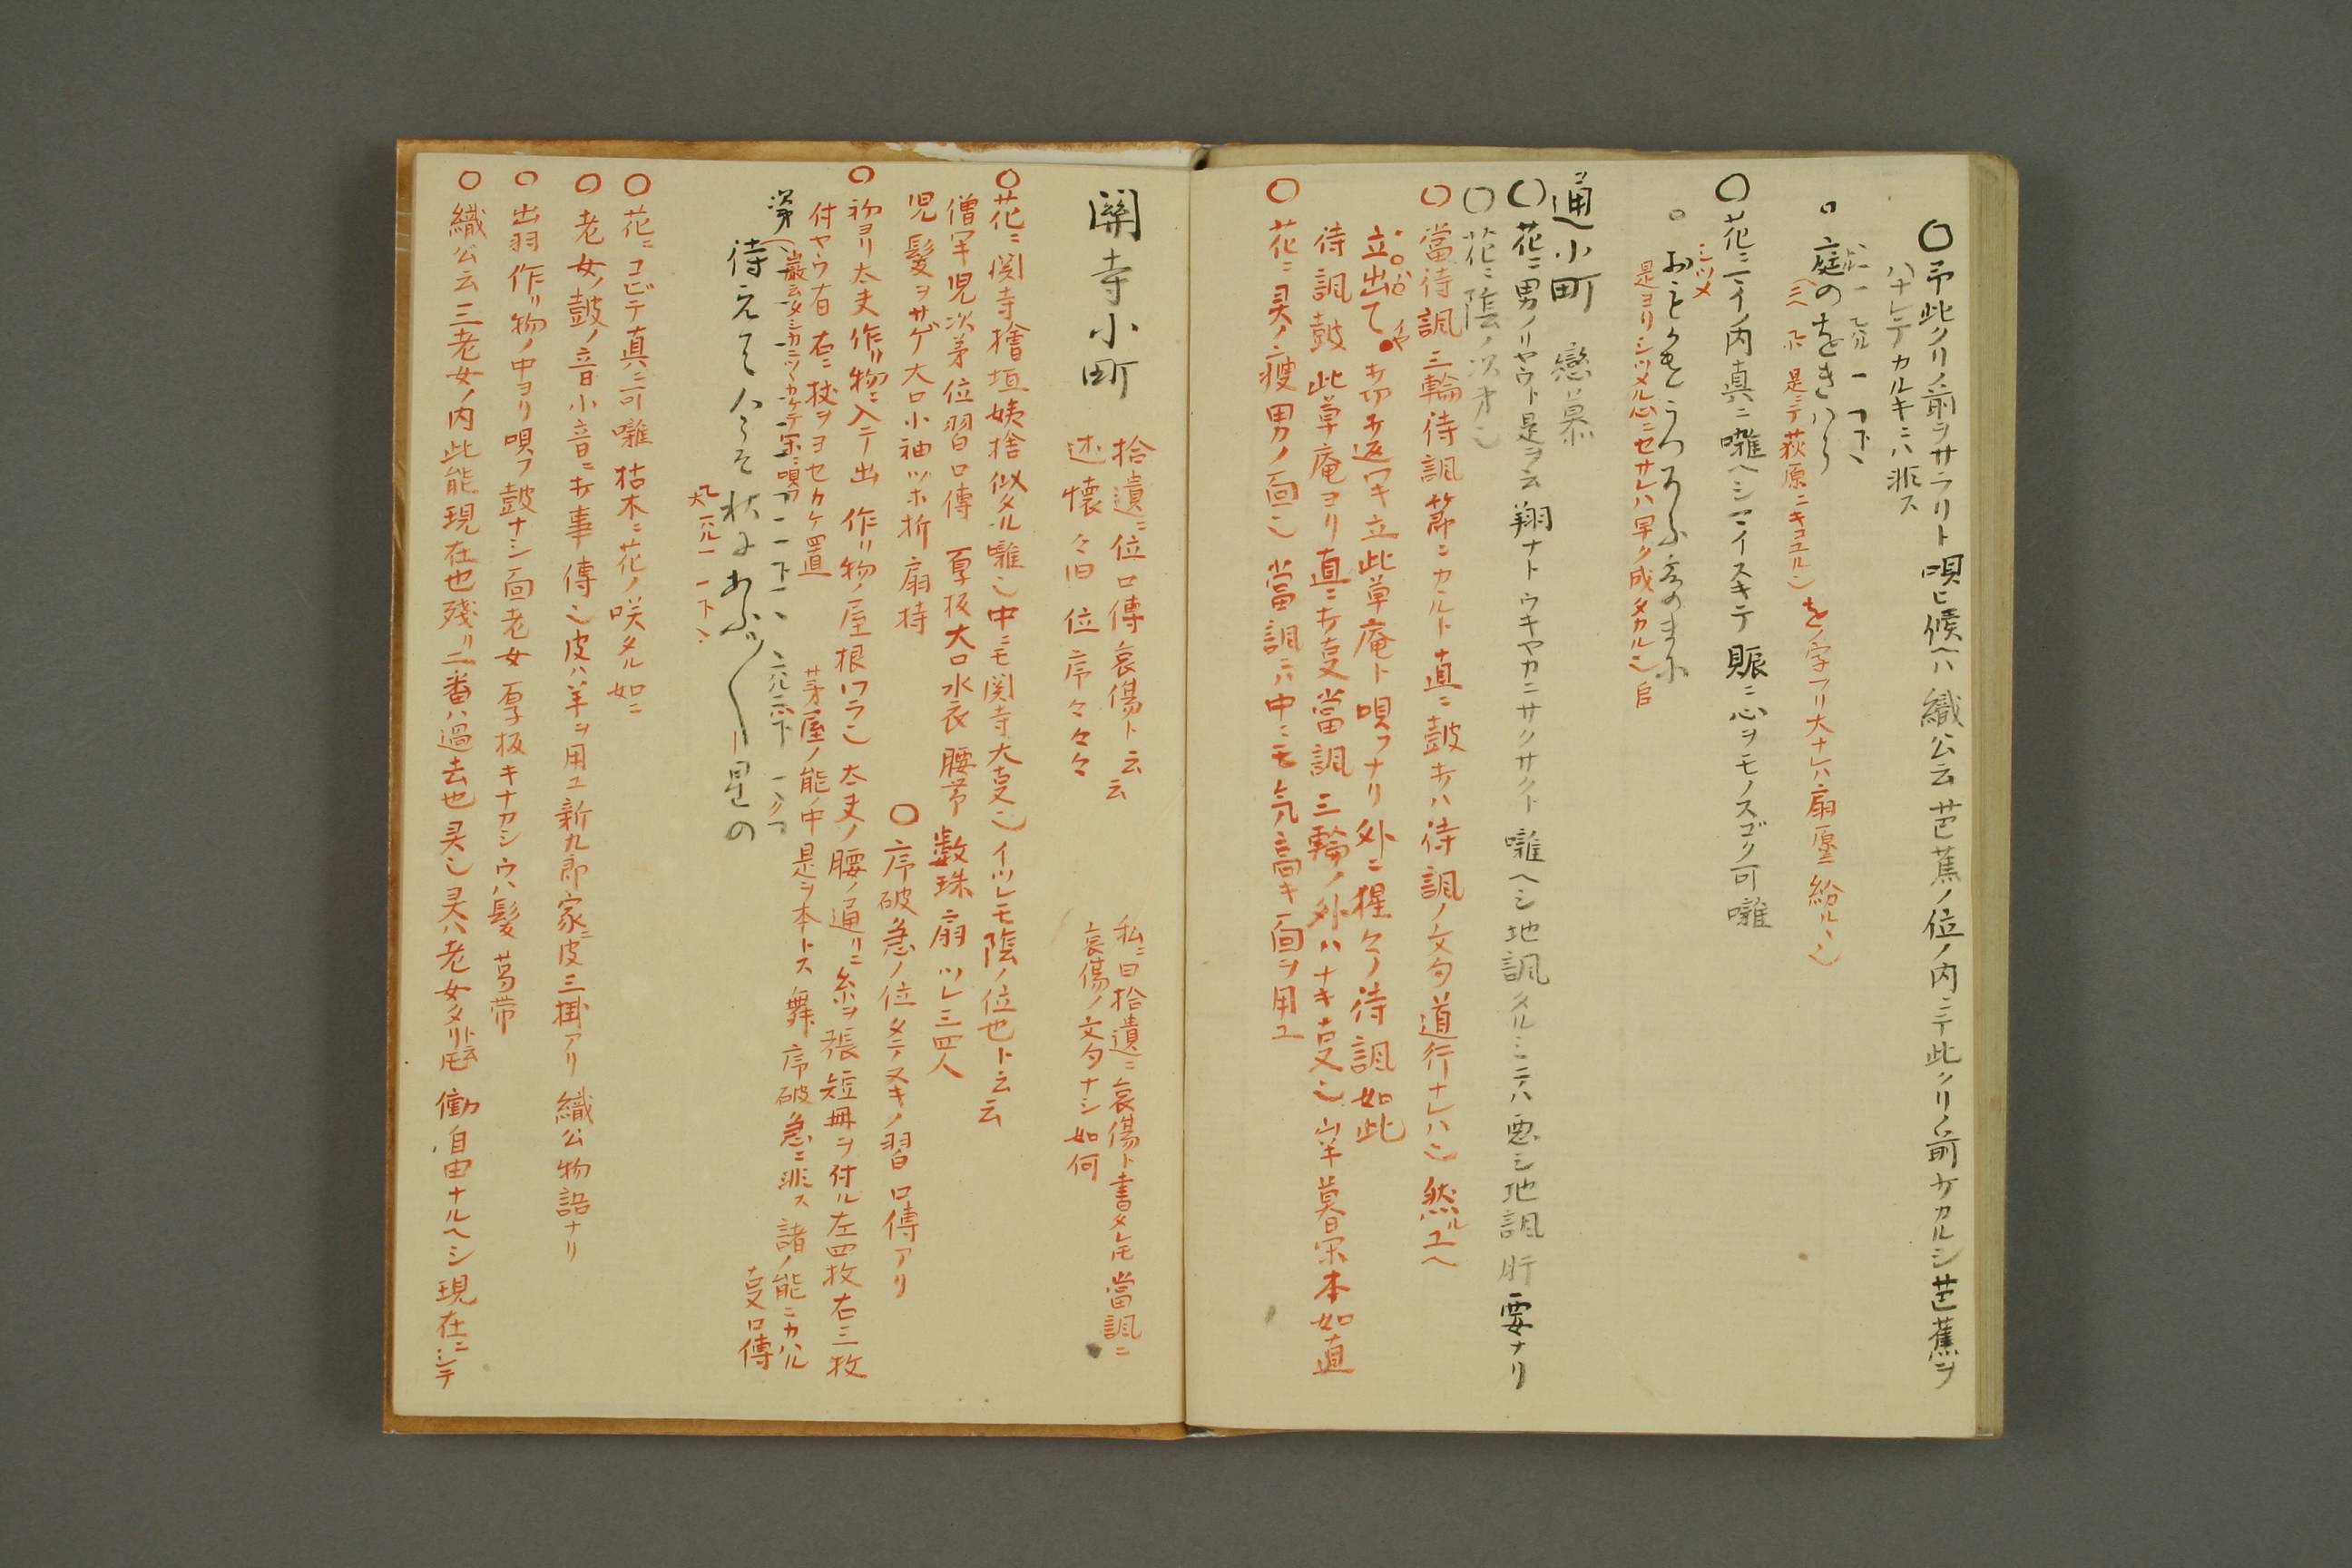 〇予此クリノ前ヲサラリト唄ヒ候ヘハ織公云芭蕉ノ位ノ内ニテ此クリノ前ケカルシ芭蕉ヲ
ハナレテカルキニハ非ス
庭のをきハら
是ニテ荻原ニキコユル也 をノ字フリ大ナレハ扇原ニ紛ルヽ也
〇花ニ一イノ内真ニ囃ヘシマイスキテ賑ニ心ヲモノスゴク可囃
シツメ
是ヨリシツメル心ニセサレハ早ク成タカル也
通小町 戀慕
〇花ニ男ノリヤウト是ヲ云翔ナトウキヤカニサクサクト囃ヘシ地謡タルミテハ悪シ地謡肝要ナリ
〇花ニ陰ノ次才也
〇當待謡三輪待謡節ニカルト直ニ鼓打ハ待謡ノ文句道行ナレハ也然ルユヘ
立出て 打切打返ワキ立此草庵ト唄フナリ外ニ猩々ノ待謡如此
待謡鼓此草庵ヨリ直ニ打支當謡三輪ノ外ハナキ支也
〇花ニ灵ノ痩男ノ面也當謡ハ中ニモ気高キ面ヲ用ユ
關寺小町
拾遺ニ位口傳哀傷ト云云
述懐々旧 位序々々々
私ニ曰拾遺ニ哀傷ト書タレ𪜈當謡ニ
哀傷ノ文句ナシ如何
〇花ニ関寺檜垣姨捨似タル囃也中ニモ関寺大支也イツレモ陰ノ位也ト云云
僧罕児次第位習口傳 厚板大口水衣腰帯数珠扇ツレ三四人
児髪ヲサゲ大口小袖ツホ折扇持
〇序破急ノ位タテヌキノ習口傳アリ
〇初ヨリ太夫作リ物ニ入テ出 作リ物ノ屋根ワラ也太夫ノ腰ノ通リニ糸ヲ張短冊ヲ付ル左四枚右三枚
付ヤウ有右ニ杖ヲヨセカケ置 茅屋ノ能ノ中是ヲ本トス舞序破急ニ非ス諸ノ能ニカハル
支口傳
次第
待えて今そ秋にあふ〱星の
〇花ニコビテ真ニ可囃枯木ニ花ノ咲タル如ニ
〇老女ノ鼓ノ音小音ニ打事傳也皮ハ羊ヲ用ユ新九郎家ニ皮三掛アリ織公物語ナリ
〇出羽作リ物ノ中ヨリ唄フ鼓ナシ面老女厚板キナカシウハ髪葛帯
〇織公云三老女ノ内此能現在也残リ二番ハ過去也灵也灵ハ老女タリト云𪜈働自由ナルヘシ現在ニシテ